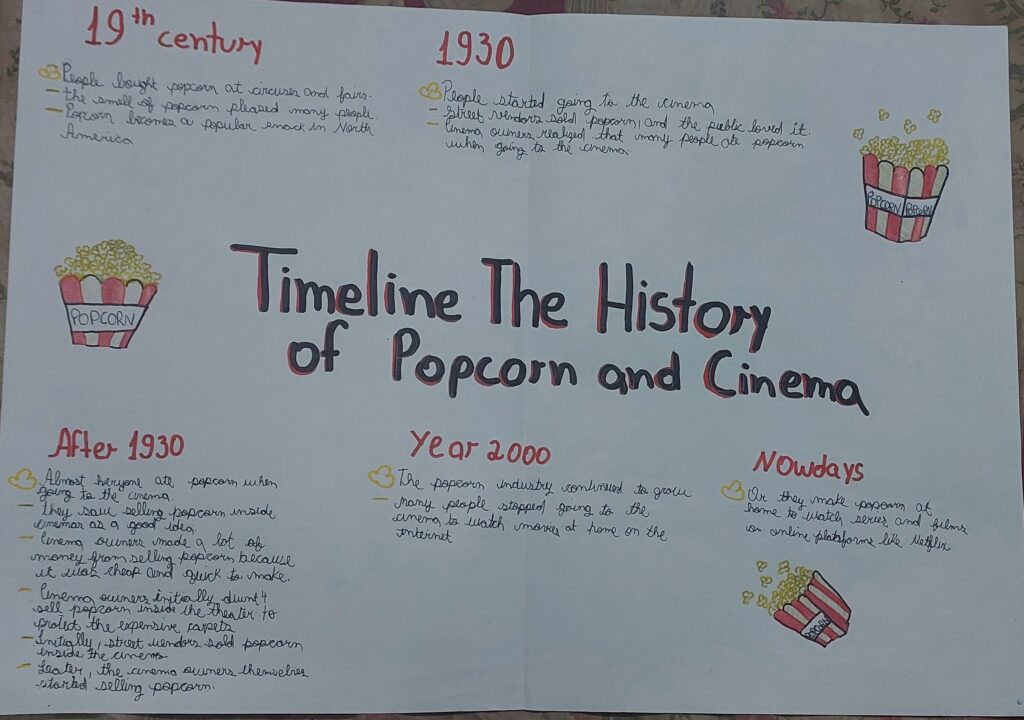 19th century
People bought popcorn at circuses and fairs.
- the smell of popcorn pleased many people.
- Popcorn becomes a popular snack in North
America
1930
People started going to the cinema
- Street vendors sold popcorn, and the public loved it.
- Cinema owners realized that many people ate popcorn
when going to the cinema.
POPCORN POPCORN
POPCORN
Timeline The History
of Popcorn and Cinema
After 1930
Almost everyone ate popcorn when
going to the cinema.
- They saw selling popcorn inside
cinemas as a good idea
- Cinema owners made a lot of
money from selling popcorn because
it was cheap and quick to make.
- Cinema owners initially didn't
sell popcorn inside the theater to
protect the expensive carpets
- Initially, street vendors sold popcorn
inside the cinema
- Leater, the cinema owners themselves
started selling popcorn.
Year 2000
The popcorn industry continued to grow
- Many people stopped going to the
cinema to watch movies at home on the
Internet
Nowdays
Or they make popcorn at
home to watch series and films
on online plataforms like Netflix
POPCORN